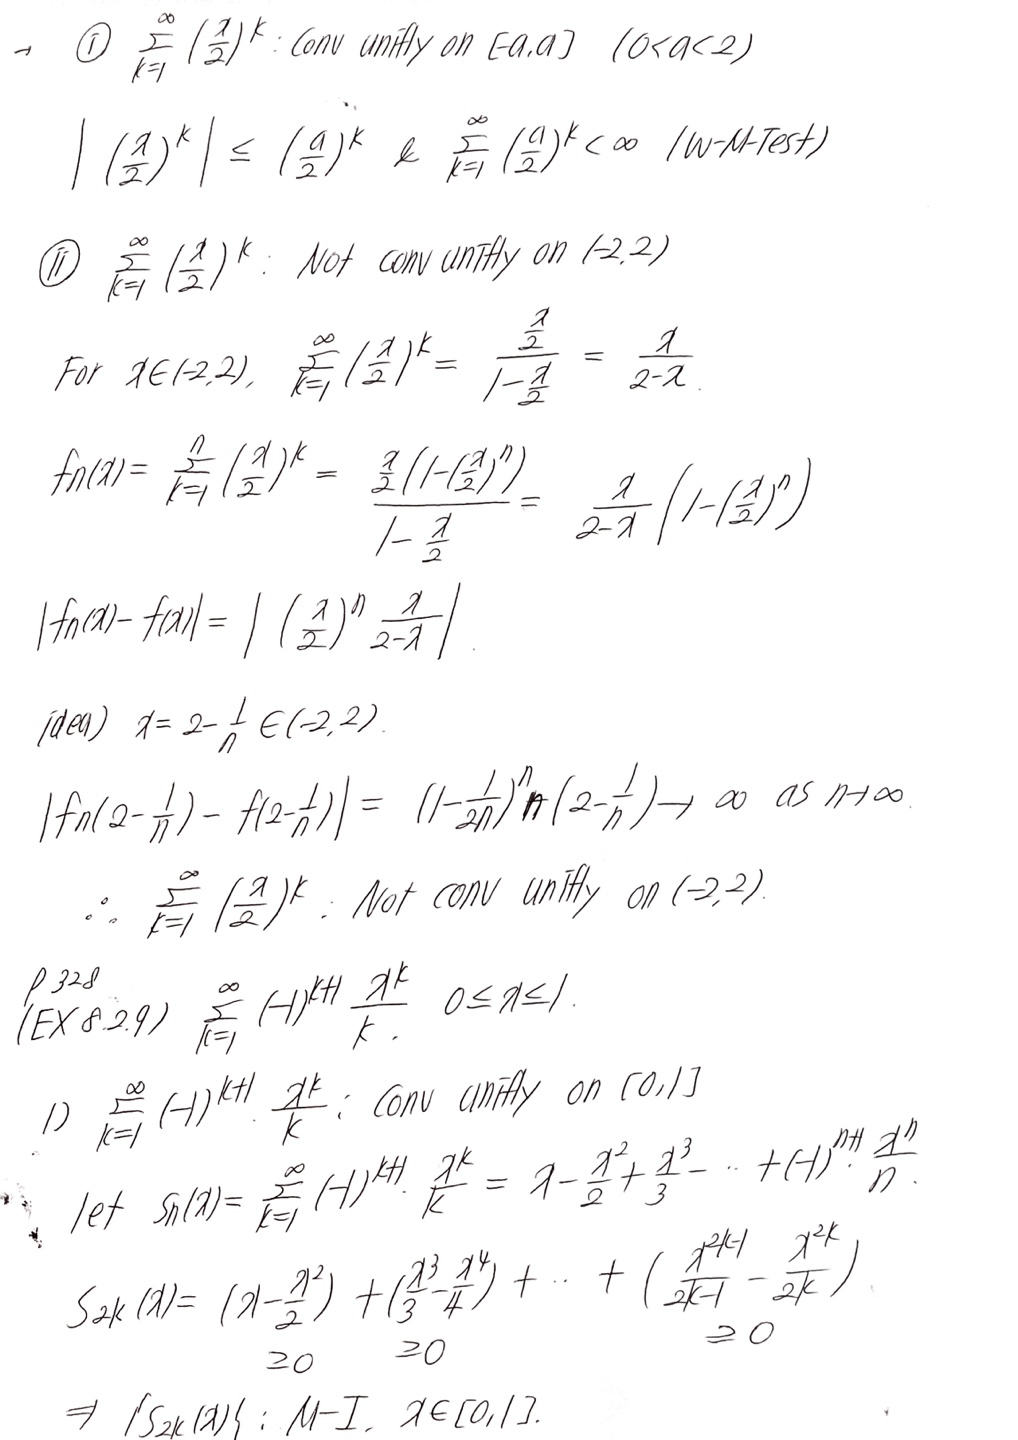 → ⓘ ∑_{k=1}^{∞} (x/2)^k : Conv unifly on [-a,a] (0<a<2)
|(x/2)^k| ≤ (a/2)^k & ∑_{k=1}^{∞} (a/2)^k < ∞ (W-M-Test)
ⓘⓘ ∑_{k=1}^{∞} (x/2)^k : Not conv unifly on (-2,2)
For x∈(-2,2), ∑_{k=1}^{∞} (x/2)^k = (x/2)/(1-x/2) = x/(2-x).
fn(x) = ∑_{k=1}^{n} (x/2)^k = (x/2)(1-(x/2)^n)/(1-x/2) = x/(2-x) (1-(x/2)^n)
|fn(x)-f(x)| = |(x/2)^n x/(2-x)|.
idea) x = 2-1/n ∈(-2,2).
|fn(2-1/n) - f(2-1/n)| = (1-1/2n)^n n(2-1/n) → ∞ as n→∞.
∴ ∑_{k=1}^{∞} (x/2)^k : Not conv unifly on (-2,2).
P 328
(EX 8.2.9) ∑_{k=1}^{∞} (-1)^{k+1} x^k/k. 0≤x≤1.
1) ∑_{k=1}^{∞} (-1)^{k+1}. x^k/k : Conv unifly on [0,1]
let Sn(x) = ∑_{k=1}^{∞} (-1)^{k+1}. x^k/k = x - x^2/2 + x^3/3 - ·· + (-1)^{n+1}. x^n/n.
S2k(x) = (x-x^2/2) + (x^3/3 - x^4/4) + ·· + (x^{2k-1}/2k-1 - x^{2k}/2k)
≥0 ≥0 ≥0
⇒ {S2k(x)} : M-I. x∈[0,1].